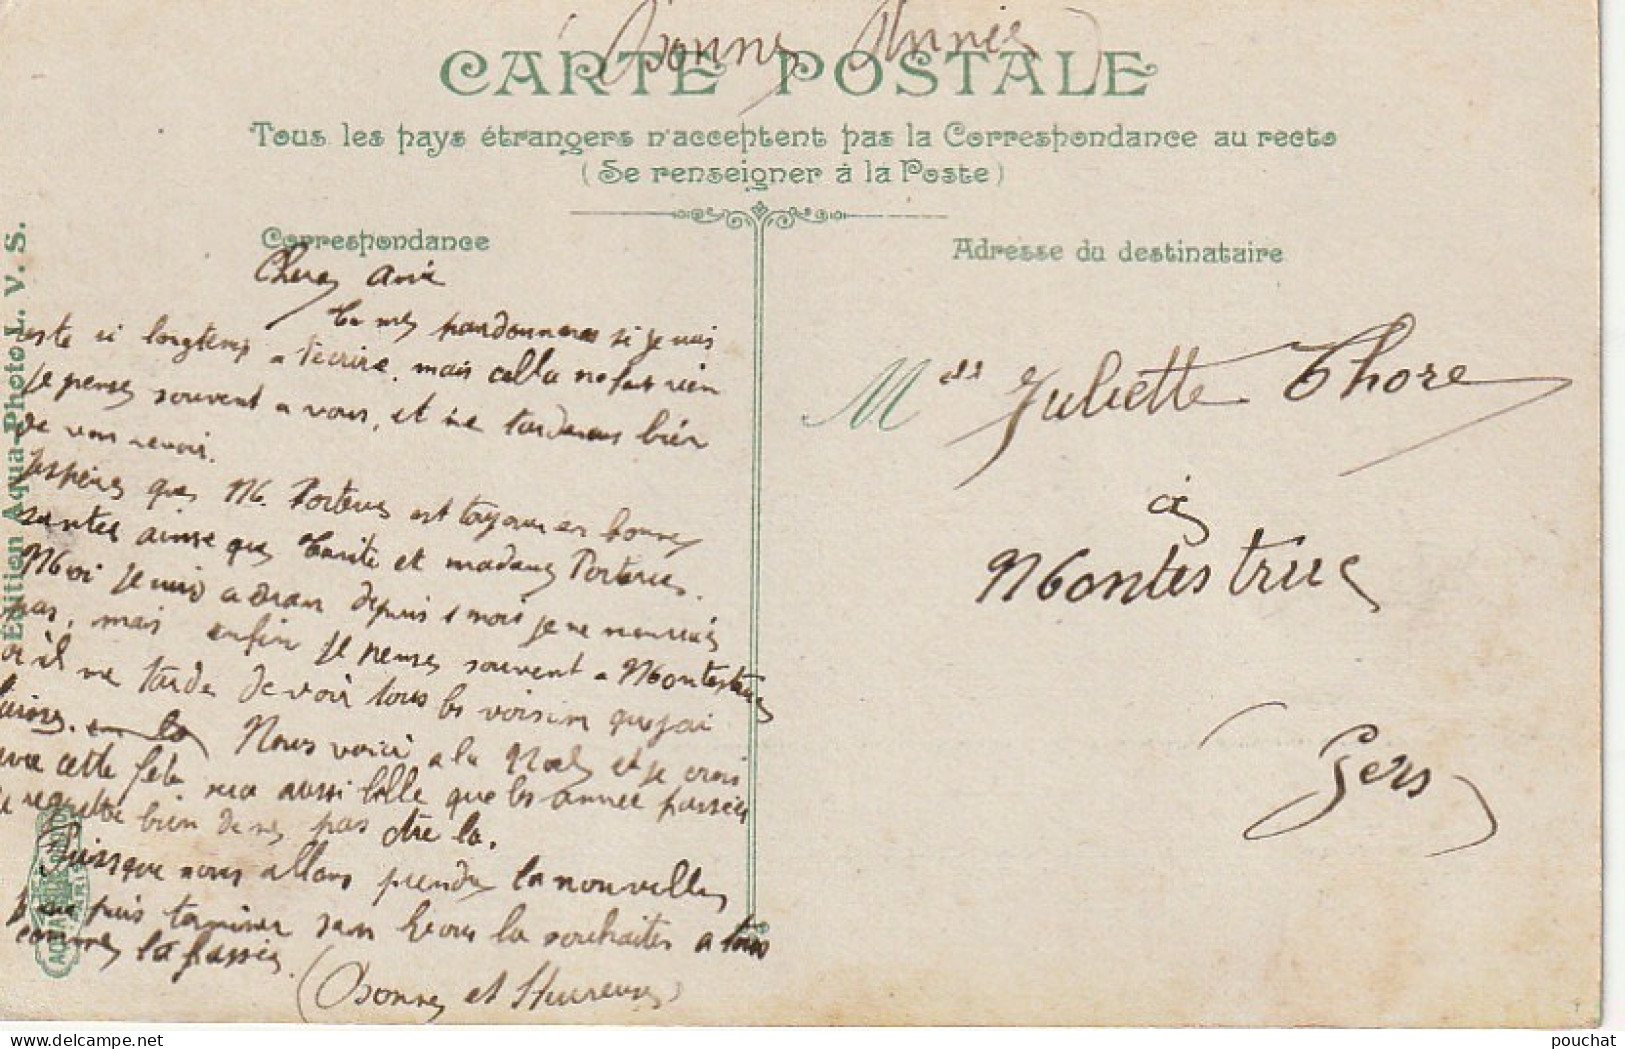 Bonne Année
CARTE POSTALE
Tous les pays étrangers n'acceptent pas la Correspondance au recto
(Se renseigner à la Poste)
Correspondance
Adresse du destinataire
Edition Aqua-Photo L. V. S.
Chere amie
Tu me pardonneras si je suis
reste si longtemp a t'ecrire. mais cella ne fait rien
je pense souvent a vous, et ne tarderais bien
de vous revoir.
J'espère que M. Porterie est toujour en bonne
santée ainsie que et madame Porterie.
Moi je suis a depuis 1 mois je ne
pas, mais enfin je pense souvent a Montestruc
où il me tarde de voir tous les voisin que j'ai
laisse. en la Nous voici a la Noel et je crois
que cette fete sera aussi belle que les année passée
je regrette bien de ne pas être la.
Puisque nous allons prendre la nouvelle
je ne puis terminer sans vous la souhaiter a tous
comme la passée.
(Bonne et Heureuse)
Melle Juliette Thore
à
Montestruc
Gers
AQUA PHOTO
PARIS
pouchat